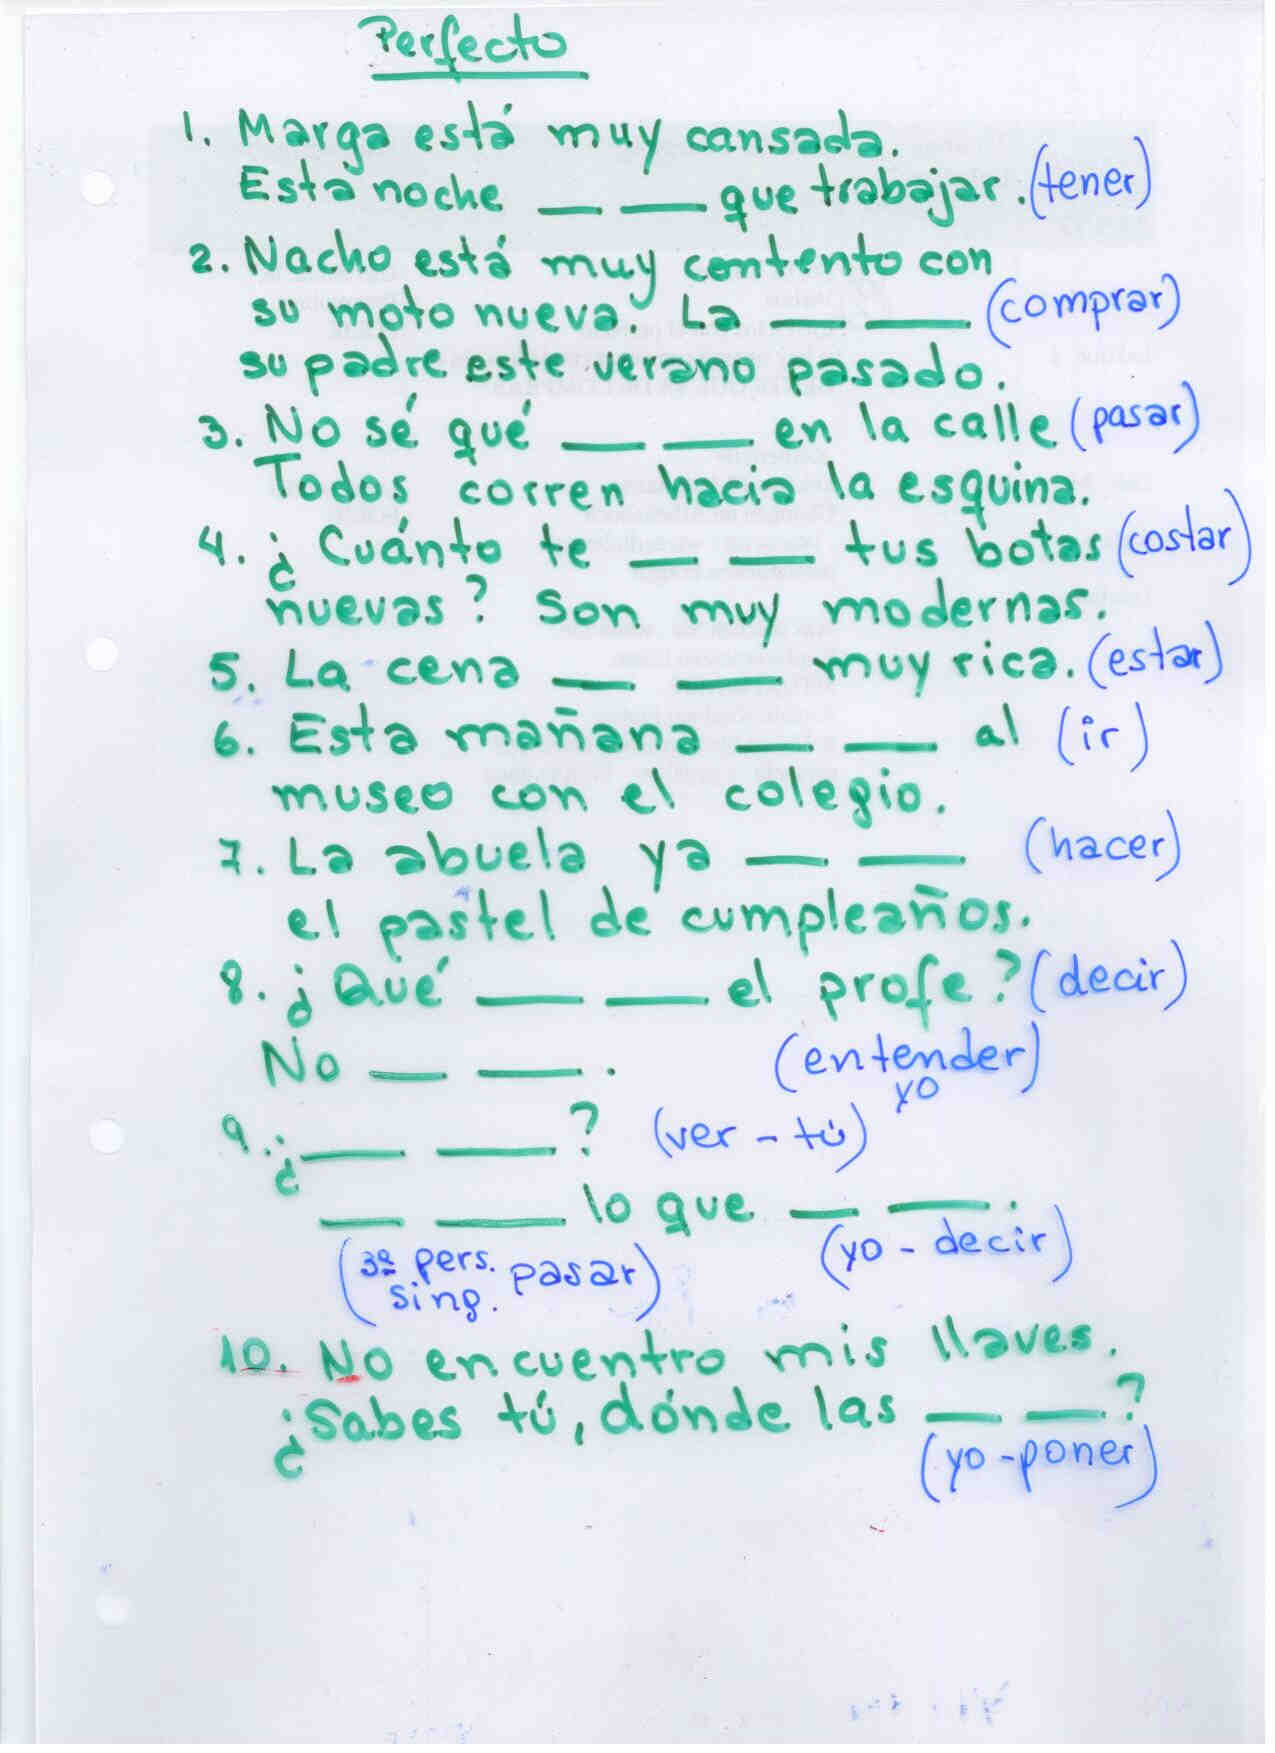 Perfecto
1. Marga está muy cansada.
Esta noche __ __ que trabajar. (tener)
2. Nacho está muy contento con
su moto nueva. La __ __ (comprar)
su padre este verano pasado.
3. No sé qué __ __ en la calle (pasar)
Todos corren hacia la esquina.
4. ¿Cuánto te __ __ tus botas (costar)
nuevas? Son muy modernas.
5. La cena __ __ muy rica. (estar)
6. Esta mañana __ __ al (ir)
museo con el colegio.
7. La abuela ya __ __ (hacer)
el pastel de cumpleaños.
8. ¿Qué __ __ el profe? (decir)
No __ __. (entender)
yo
9. ¿__ __? (ver - tú)
__ __ lo que __ __.
(3ª pers. sing. pasar) (yo - decir)
10. No encuentro mis llaves.
¿Sabes tú, dónde las __ __?
(yo - poner)